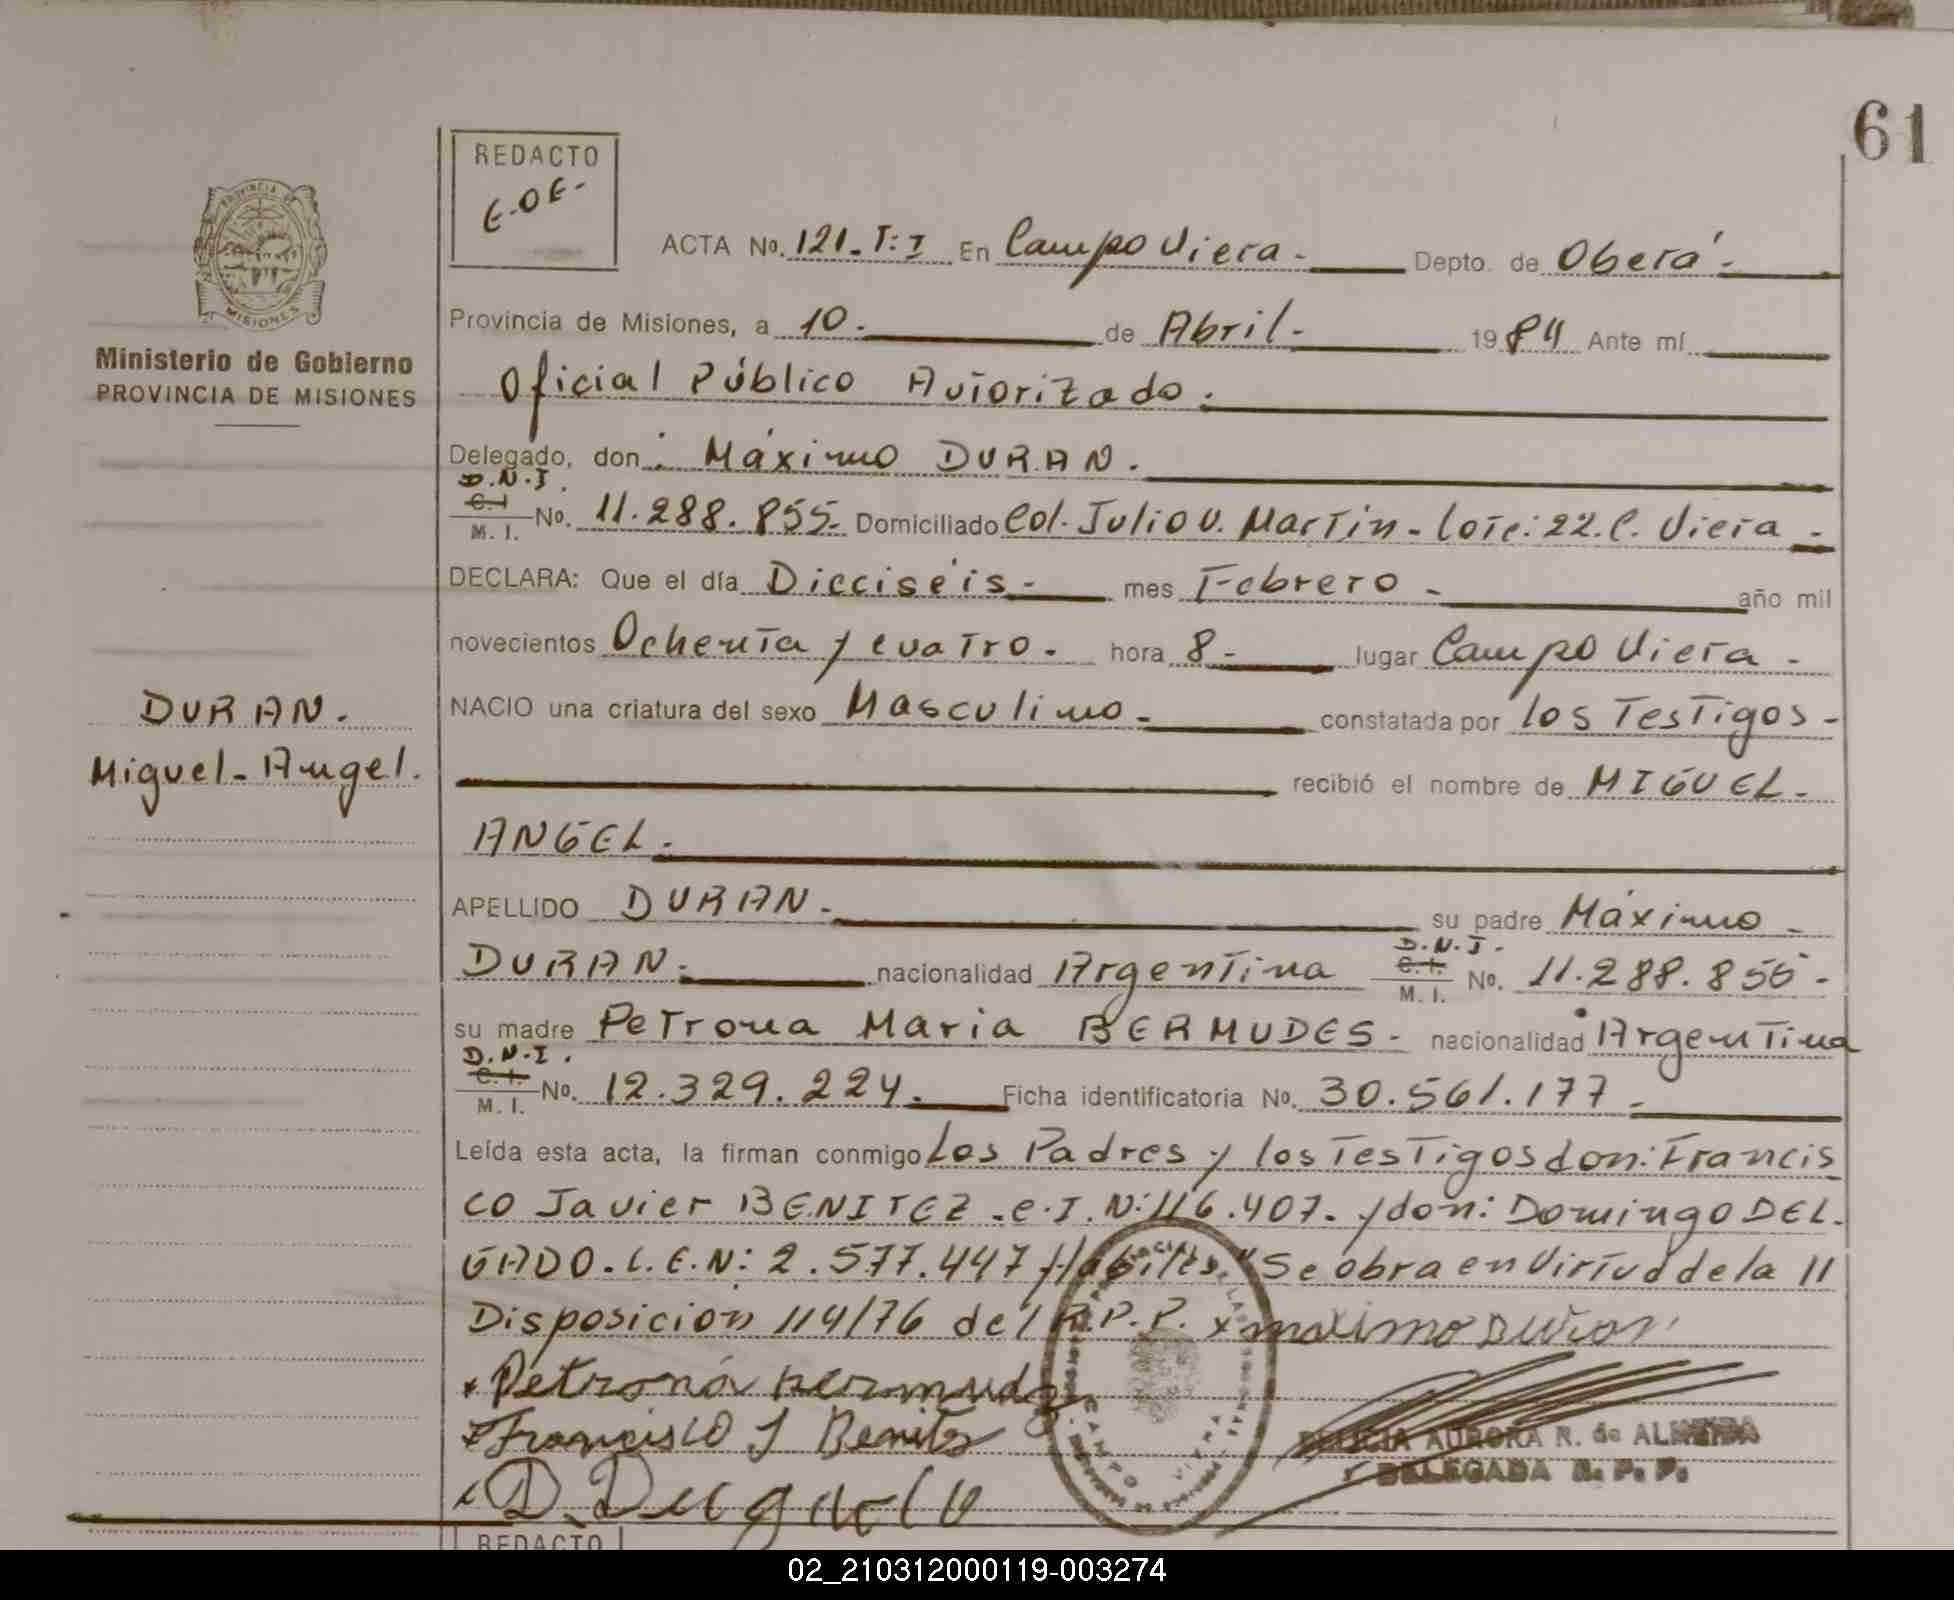 61
REDACTO
E.O.E.-
ACTA No. 121.T:I En Campo Viera.- Depto. de Oberá.-
Provincia de Misiones, a 10.- de Abril.- 1984 Ante mí
Oficial Público Autorizado.
PROVINCIA DE
MISIONES
Ministerio de Gobierno
PROVINCIA DE MISIONES
Delegado, don: Máximo DURAN.
D.N.I.
C.I.
M. I. No. 11.288.855.- Domiciliado Col. Julio U. Martin - Lote: 22. C. Viera -
DECLARA: Que el día Dieciséis.- mes Febrero - año mil
novecientos Ochenta y cuatro. hora 8.- lugar Campo Viera -
DURAN.
Miguel-Angel.
NACIO una criatura del sexo Masculino.- constatada por los Testigos-
recibió el nombre de MIGUEL-
ANGEL.
APELLIDO DURAN.- su padre Máximo -
DURAN.- nacionalidad Argentina D.N.I. C.I. M. I. No. 11.288.855-
su madre Petrona Maria BERMUDES- nacionalidad Argentina
D.N.I.
C.I.
M. I. No. 12.329.224. Ficha identificatoria No. 30.561.177-
Leída esta acta, la firman conmigo Los Padres y los Testigos don: Francis
co Javier BENITEZ -C.I.N: 116.407. y don: Domingo DEL-
GADO. L.E.N: 2.577.447 Habiles "Se obra en Virtud de la 11
Disposición 114/76 del R.P.P. x maximo Duran
x Petrona bermudez
x Francisco J Benitez
x D. Delgado
CAMPO VIERA
DELICIA AURORA R. de ALMEIDA
DELEGADA R. P. P.
REDACTO
02_210312000119-003274